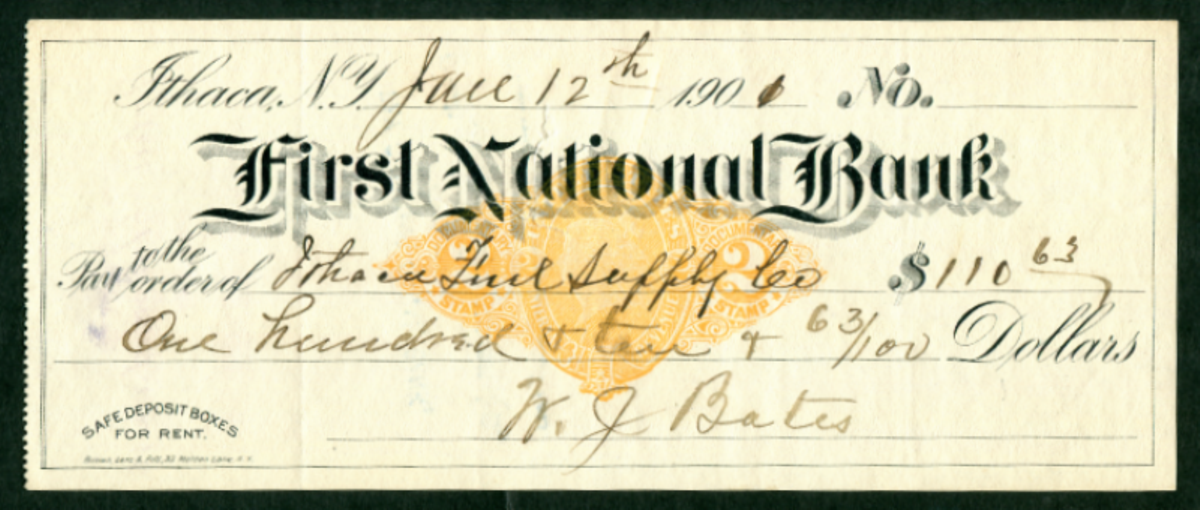 Ithaca, N.Y. June 12th 1901 No.
First National Bank
Pay to the order of Ithaca Fuel Supply Co $110 63
One hundred & ten & 63/100 Dollars
W. J. Bates
DOCUMENTARY
2 2
STAMP STAMP
SAFE DEPOSIT BOXES
FOR RENT.